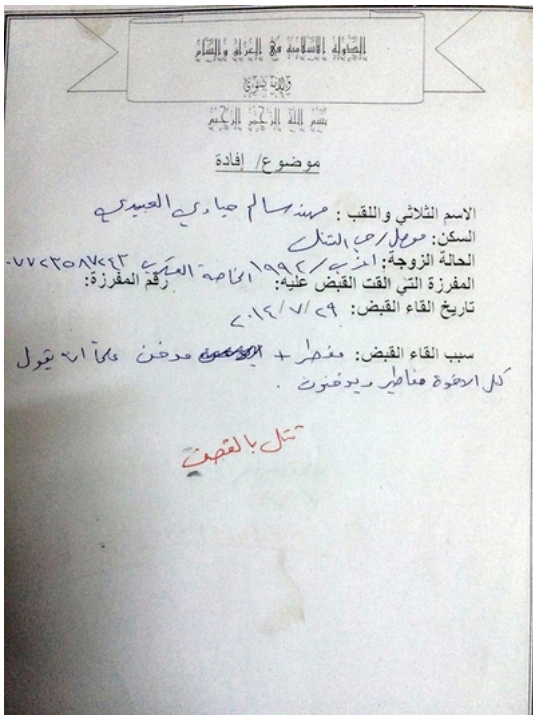 الدولة الاسلامية في العراق والشام
ولاية نينوى
بسم الله الرحمن الرحيم
موضوع/ إفادة
الاسم الثلاثي واللقب : مهند سالم حيادي العبيدي
السكن: موصل / حي التنك
الحالة الزوجة: اعزب / ١٩٩٢ الخاصة ٠٧٧٢٣٥٨٧٢٤٣
المفرزة التي القت القبض عليه: رقم المفرزة:
تاريخ القاء القبض: ٢٩ / ٧ / ٢٠١٤
سبب القاء القبض: مفطر + مدخن علماً انه يقول
كل الاخوة مفاطير ويدخنون .
قتل بالقصف